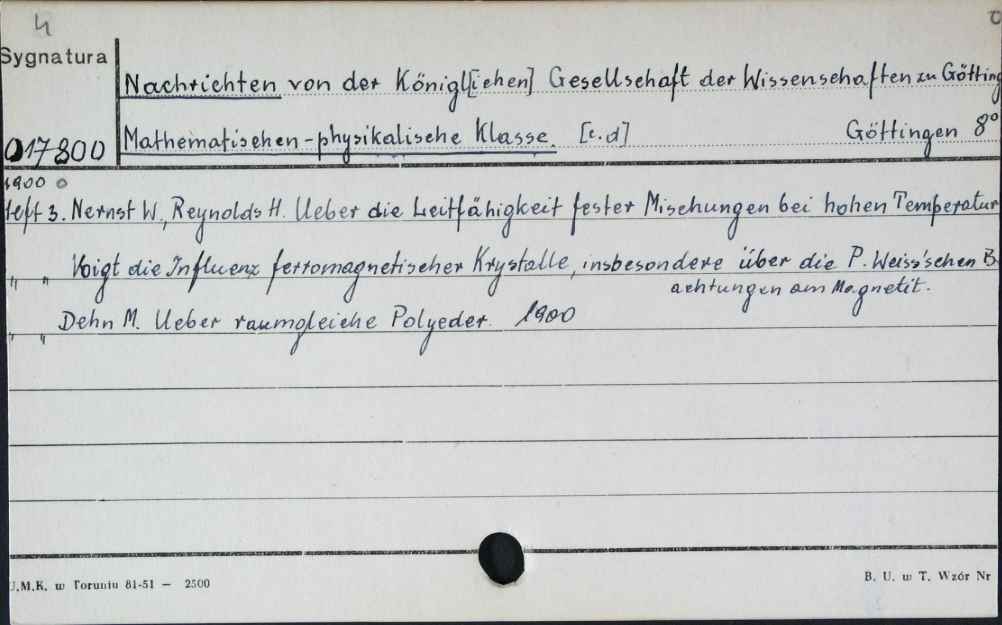 4
Sygnatura
Nachrichten von der Königl[ichen] Gesellschaft der Wissenschaften zu Götting
017800 Mathematischen-physikalische Klasse. [c.d] Göttingen 8°
1900
Heft 3. Nernst W., Reynolds H. Ueber die Leitfähigkeit fester Mischungen bei hohen Temperatur
" " Voigt die Influenz ferromagnetischer Krystalle, insbesondere über die P. Weiss'schen B
achtungen am Magnetit.
" " Dehn M. Ueber raumgleiche Polyeder. 1900
U.M.K. w Toruniu 81-51 — 2500
B. U. w T. Wzór Nr